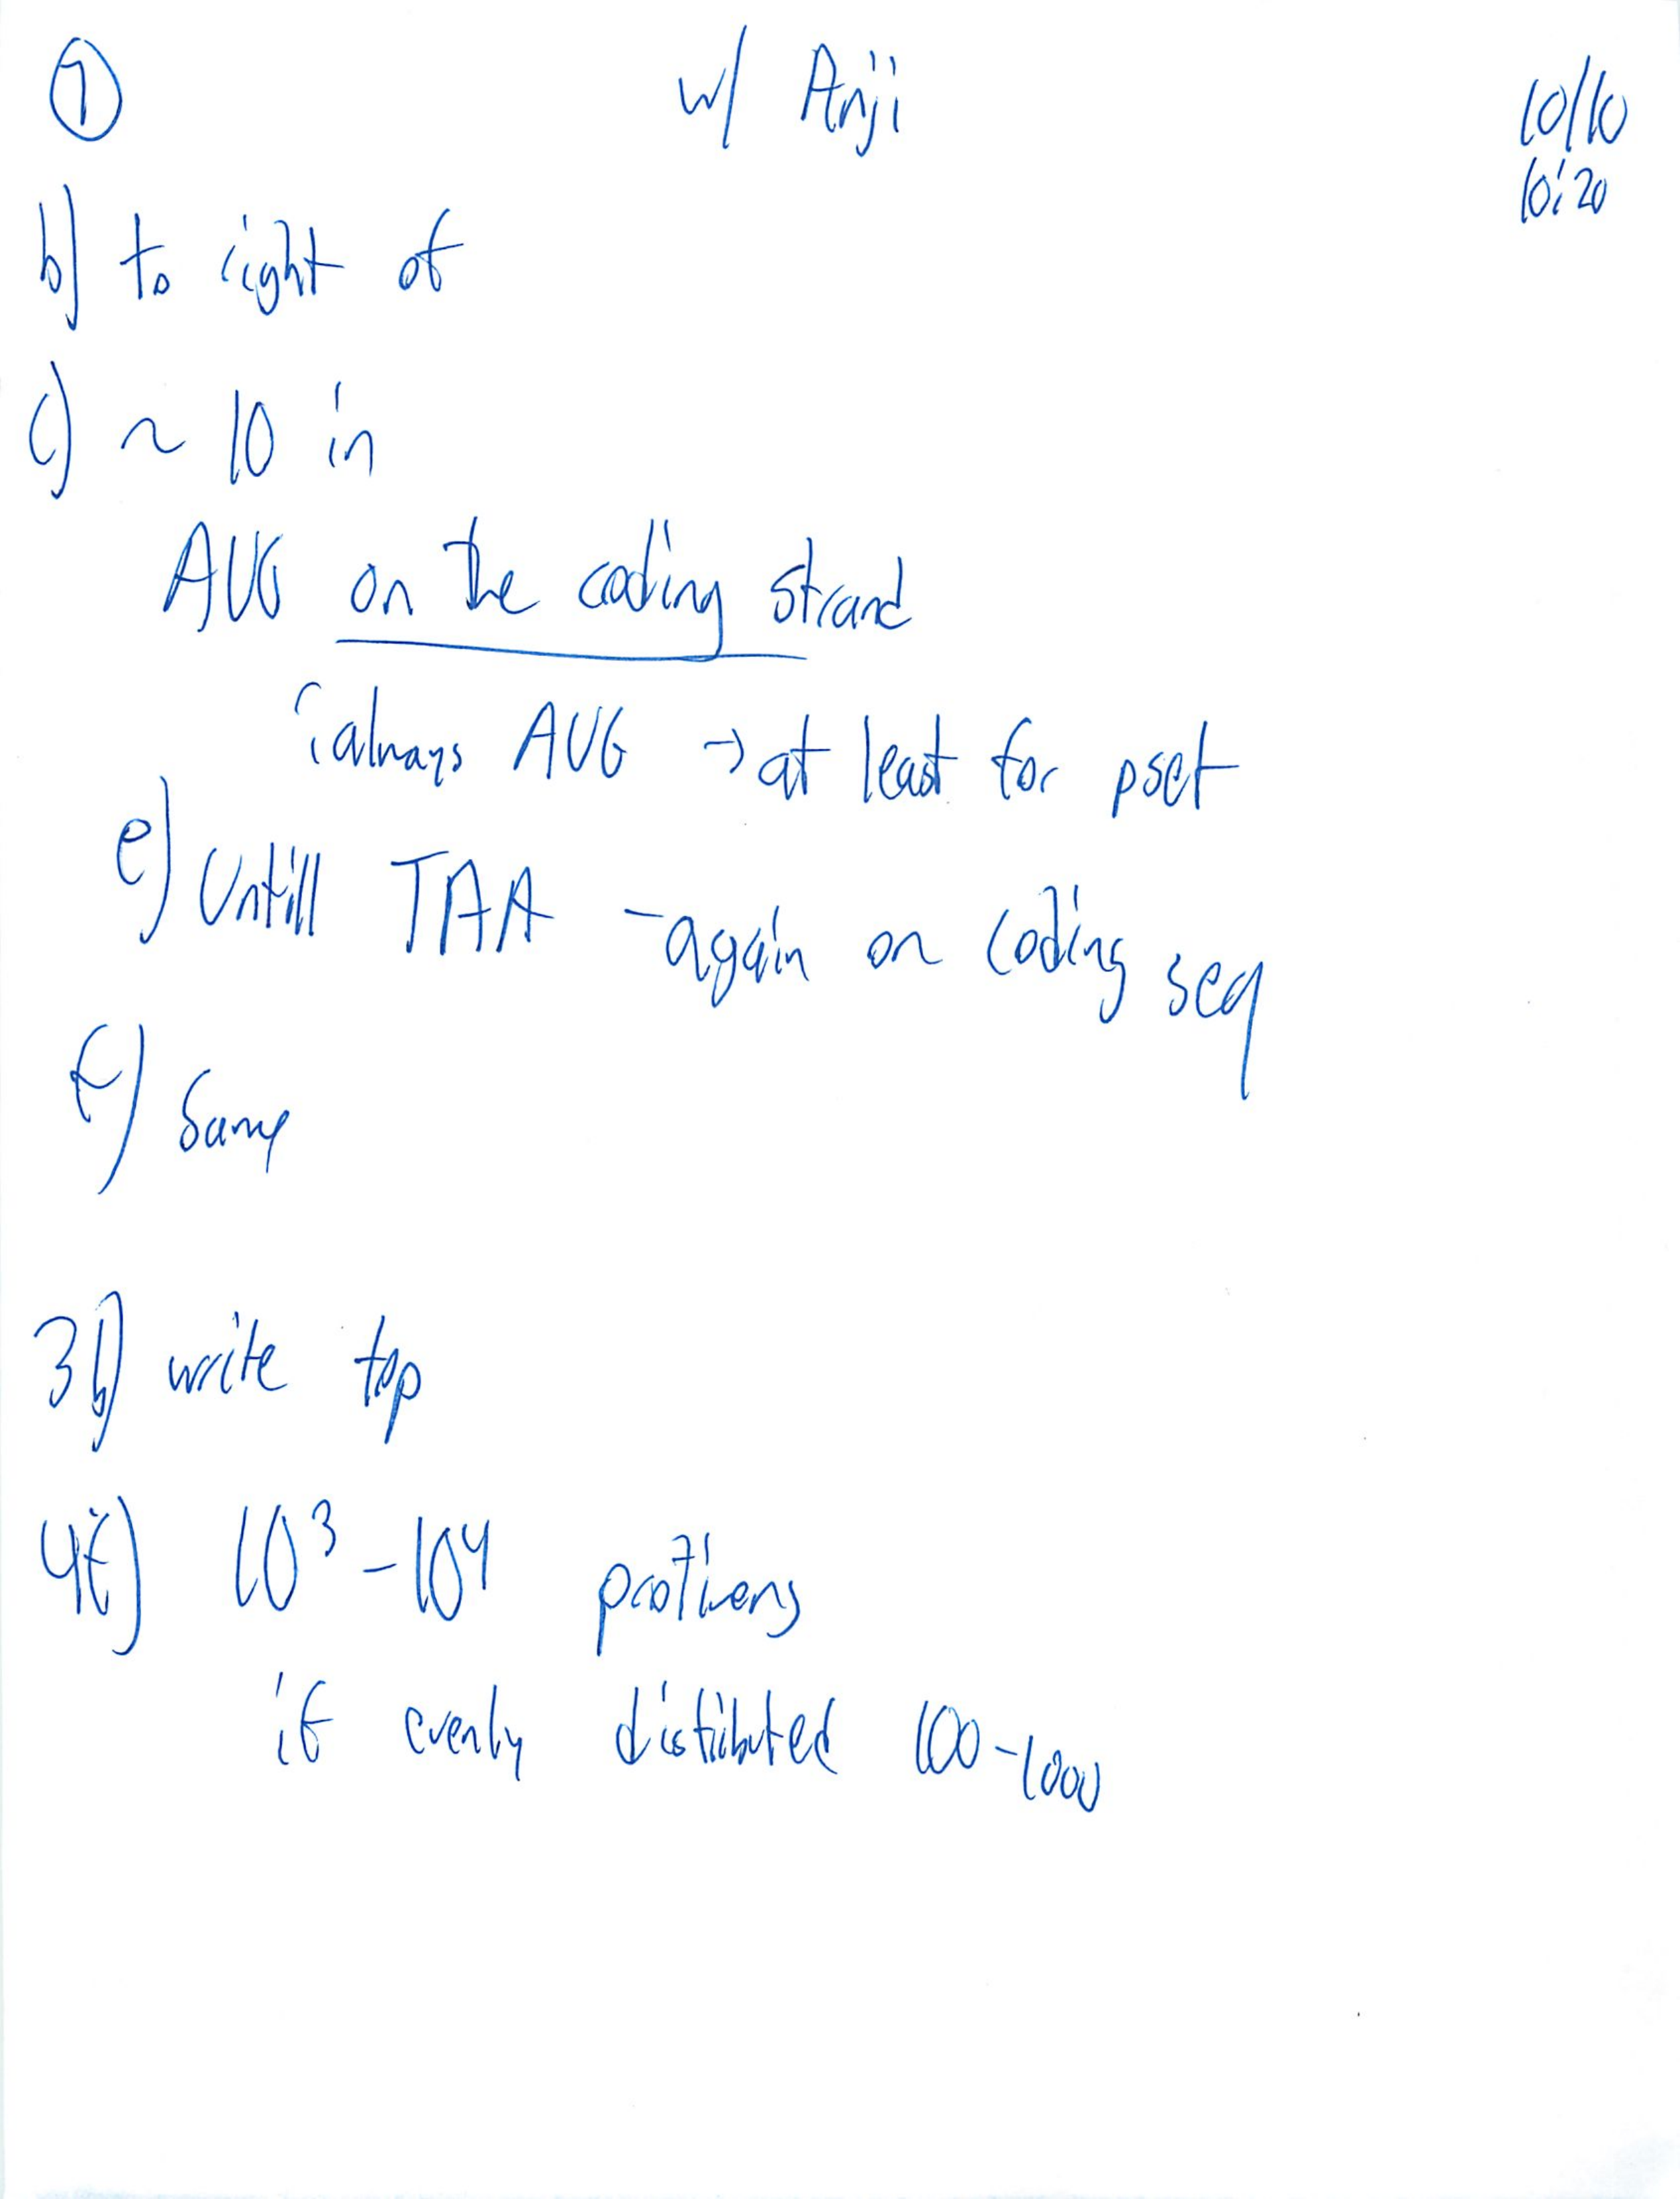 ① w/ Anji 10/10
10:20
b) to right of
c) ~ 10 in
AUG on the coding strand
always AUG → at least for pset
e) Untill TAA - again on coding seq
f) Same
3b) write top
4f) 10³ - 10⁴ protiens
if evenly distributed 100-1000